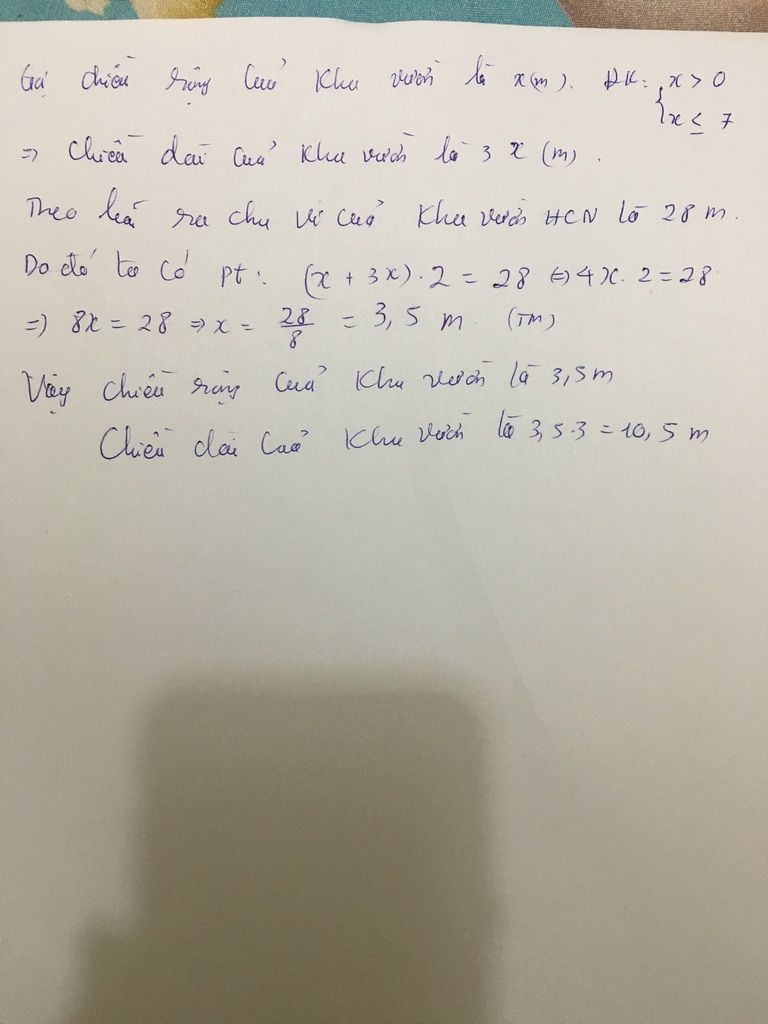 Gọi chiều rộng của khu vườn là x(m). ĐK: { x > 0
x ≤ 7
=> Chiều dài của khu vườn là 3x (m).
Theo bài ra chu vi của khu vườn HCN là 28 m.
Do đó ta có pt: (x + 3x) . 2 = 28 <=> 4x . 2 = 28
=> 8x = 28 => x = 28/8 = 3,5 m (TM)
Vậy chiều rộng của khu vườn là 3,5m
Chiều dài của khu vườn là 3,5.3 = 10,5 m